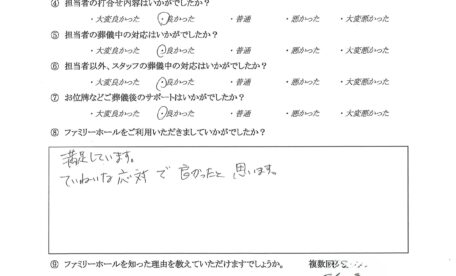 ④ 担当者の打合せ内容はいかがでしたか？
・大変良かった ・良かった ・普通 ・悪かった ・大変悪かった
⑤ 担当者の葬儀中の対応はいかがでしたか？
・大変良かった ・良かった ・普通 ・悪かった ・大変悪かった
⑥ 担当者以外、スタッフの葬儀中の対応はいかがでしたか？
・大変良かった ・良かった ・普通 ・悪かった ・大変悪かった
⑦ お位牌などご葬儀後のサポートはいかがでしたか？
・大変良かった ・良かった ・普通 ・悪かった ・大変悪かった
⑧ ファミリーホールをご利用いただきましていかがでしたか？
満足しています。
ていねいな応対で良かったと思います。
⑨ ファミリーホールを知った理由を教えていただけますでしょうか。 複数回